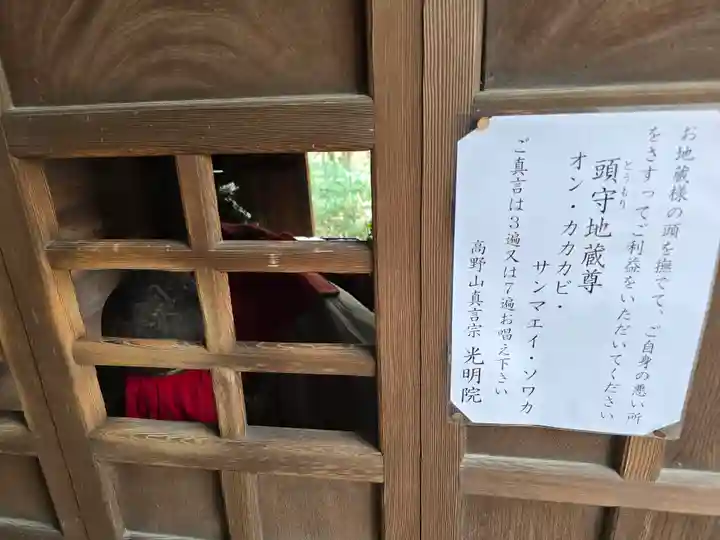 お地蔵様の頭を撫でて、ご自身の悪い所
をさすってご利益をいただいてください
頭守地蔵尊
とうもり
オン・カカカビ・
サンマエイ・ソワカ
ご真言は3遍又は7遍お唱え下さい
高野山真言宗 光明院